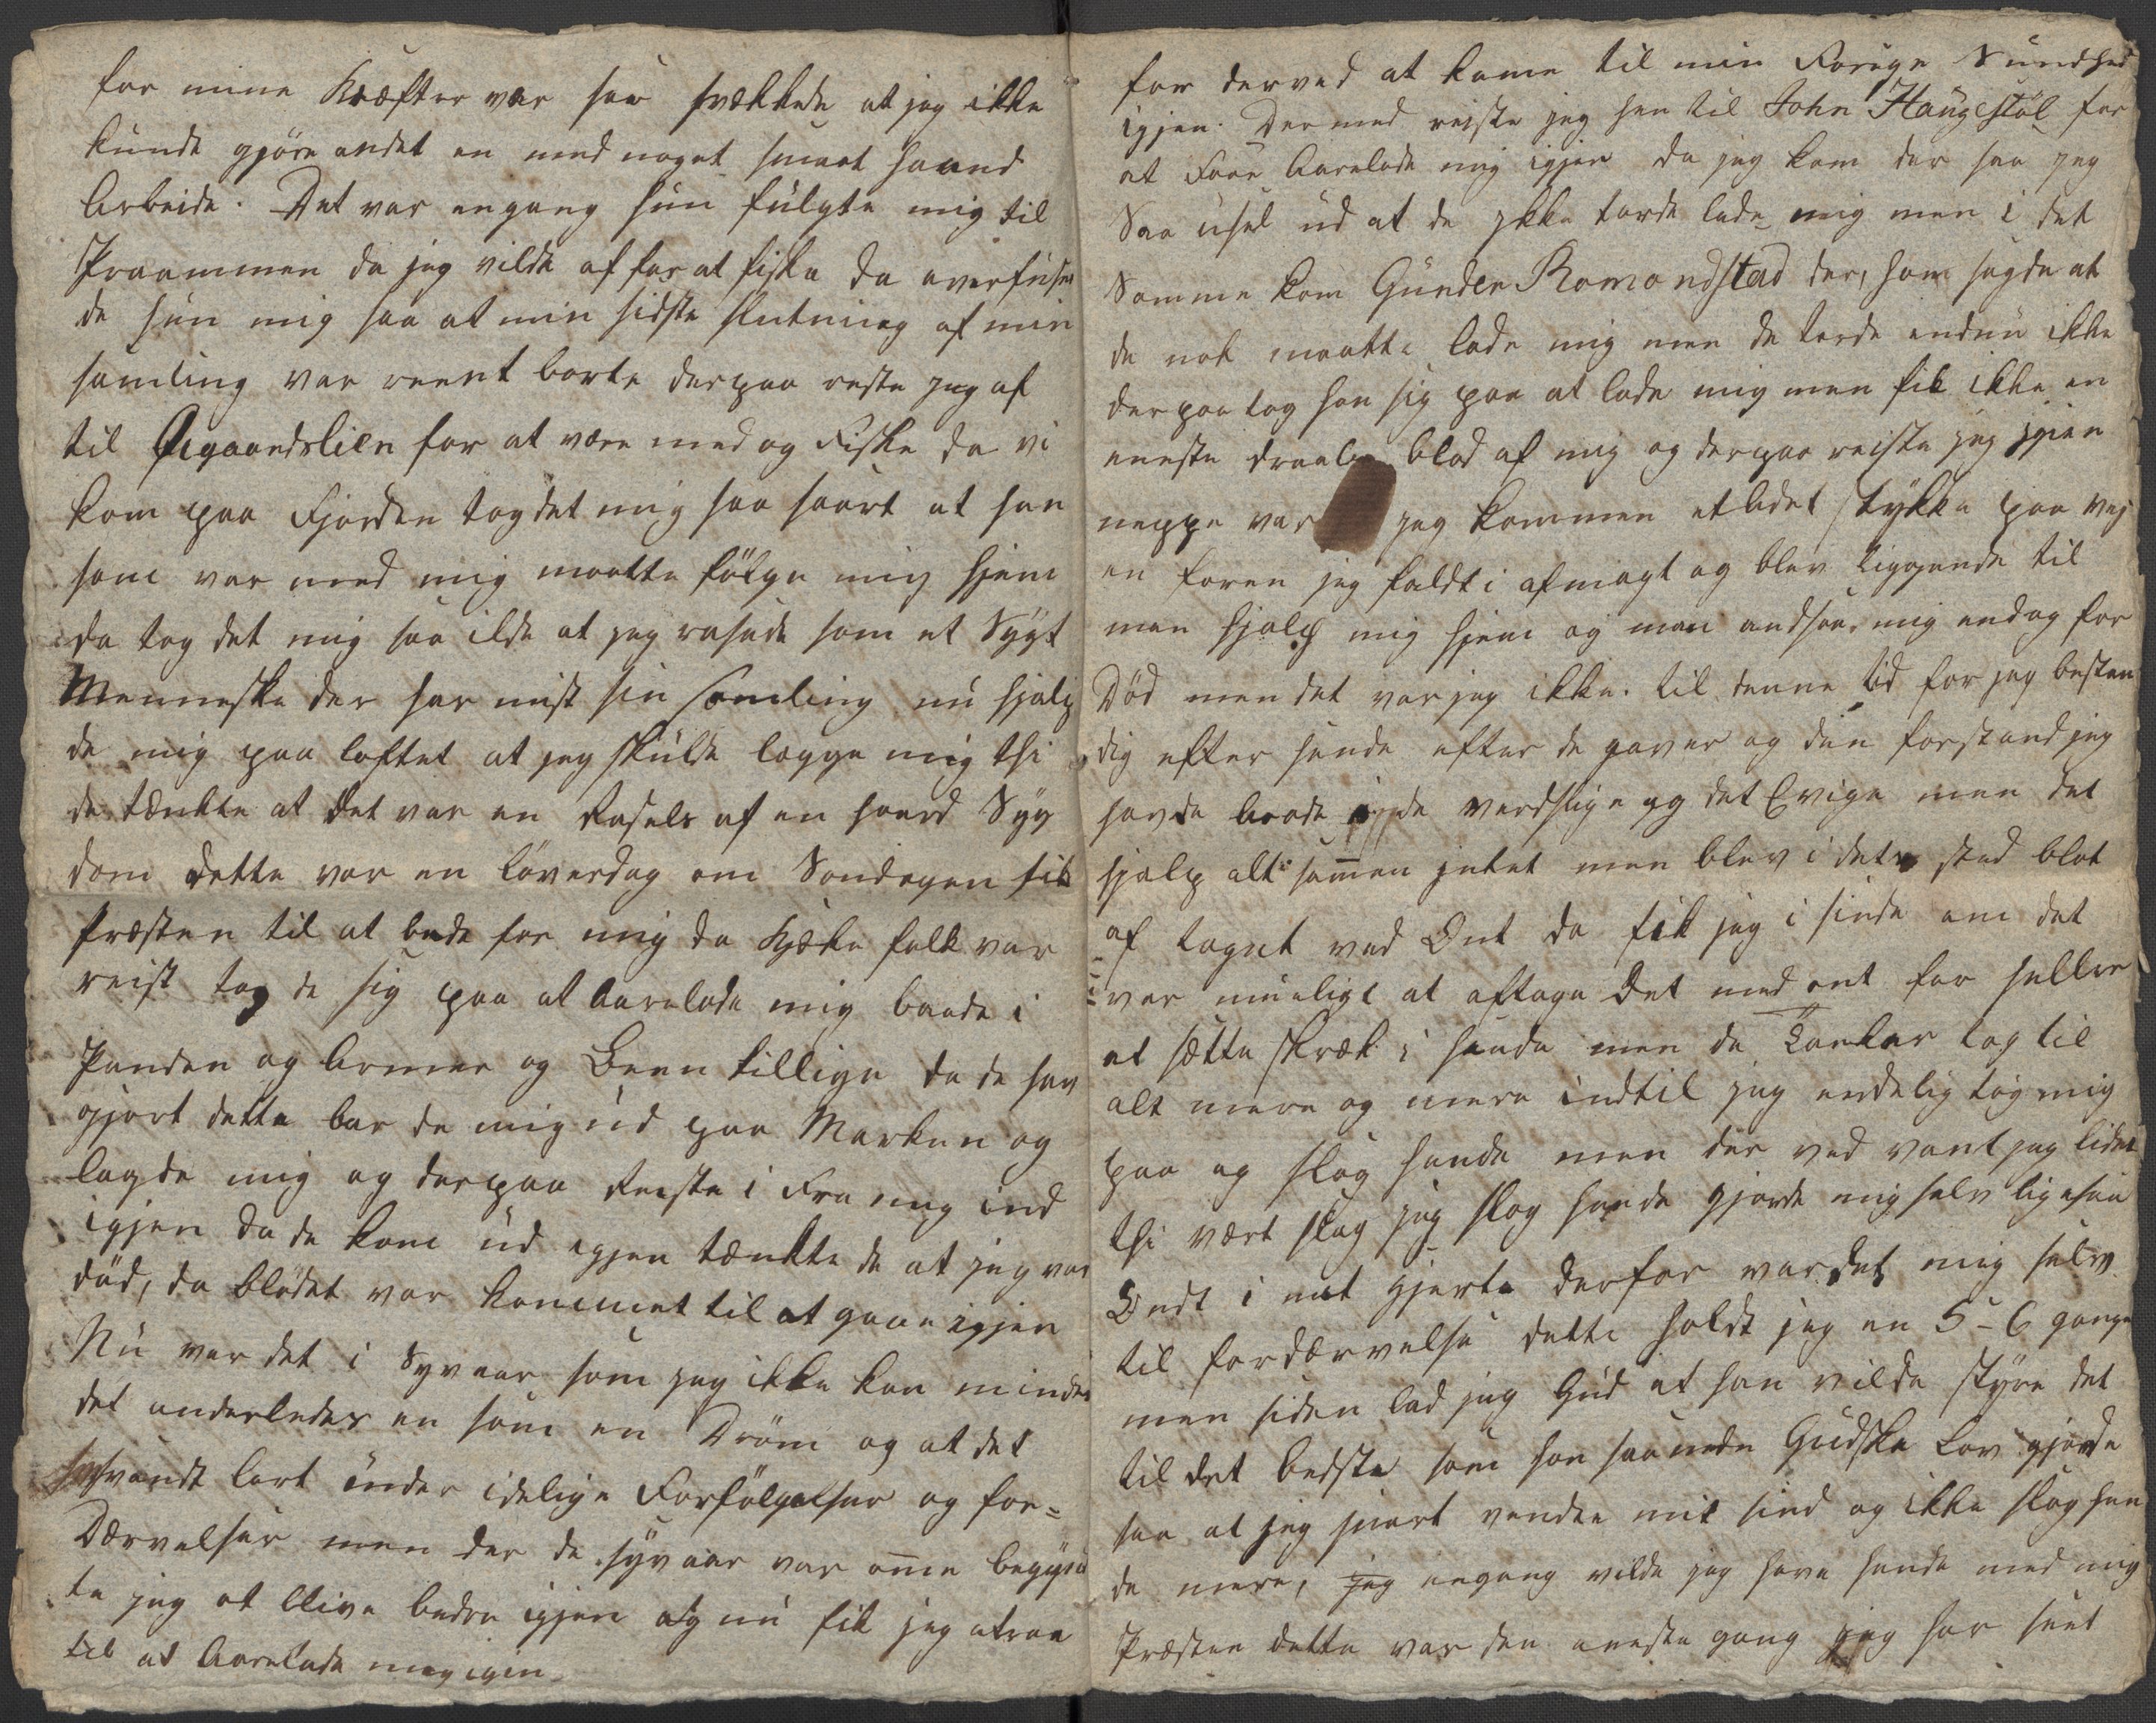 for mine Kræfter var saa svækkede at jeg ikke
kunde gjöre andet en med noget smaat haand
Arbeide. Det var engang hun fulgte mig til
Praammen da jeg vilde af for at fiske da overfuse
de hun mig saa at min sidste slutning af min
samling var reent borte derpaa reste jeg af
til Øigaardslien for at være med og Fiske da vi
kom paa Fjorden tog det mig saa haart at han
som var med mig maatte fölge mig hjem
da tog det mig saa ilde at jeg rasede som et Sygt
Menneske der har mist sin samling nu hjalp
de mig paa loftet at jeg skulde lægge mig thi
de tænkte at det var en Raselse af en haard Syg
dom dette var en löverdag om Söndagen fik
Præsten til at bede for mig da Kjærke folk var
reist tog de sig paa at Aarelade mig baade i
Panden og Armer og Been tillige da de hav
gjort dette bar de mig ud paa Marken og
lagde mig og derpaa Reiste i Fra mig ind
igjen da de kom ud igjen tænkte de at jeg var
död, da blodet var kommet til at gaae igjen
Nu var det i Syv aar som jeg ikke kan mindes
det anderledes en som en Dröm og at det
svandt bort under idelige Forfölgelser og for=
Dærvelser men der de syv aar var omme begyn
te jeg at blive bedre igjen og nu fik jeg atraa
til at Aarelade mig igien
for derved at kome til min Forige Sundhed
igjen. Dermed reiste jeg hen til John Haugestöl for
at Faae Aarelade mig igjen da jeg kom der saa jeg
Saa usel ud at de ikke torde lade mig men i det
Samme kom Gunder Romondstad der, som sagde at
de nok maatte lade mig men de torde endnu ikke
derpaa tog han sig paa at lade mig men fik ikke en
eneste draabe blod af mig og derpaa reiste jeg igien
neppe var jeg kommen et lidet stykke paa vej
en foren jeg faldt i afmagt og blev liggende til
man hjalp mig hjem og man andsaae mig endog for
Död men det var jeg ikke. til denne tid for jeg bestan
dig efter hende efter de gaver og den forstand jeg
havde baade i de verdslige og det Evige men det
hjalp alt sammen intet men blev i dets sted blot
af taget ved Ont da fik jeg i sinde om det
var mueligt at aftage det med ont for heller
at sætte skræk i hende men de Tanker tog til
alt mere og mere indtil jeg endelig tog mig
paa og slog hende men der ved vant jeg lidet
thi vært slag jeg slog hende gjorde mig selv ligesaa
Ondt i mit Hjerte derfor var det mig selv
til fordærvelse dette holdt jeg en 5-6 gange
men siden bad jeg Gud at han vilde styre det
til det bedste som han saa mede Gudske Lov gjorde
saa at jeg snart vendte mit sind og ikke slog hen
de mere, jeg engang vilde jeg have hende med mig
Præsten dette var den eneste gang jeg har seet